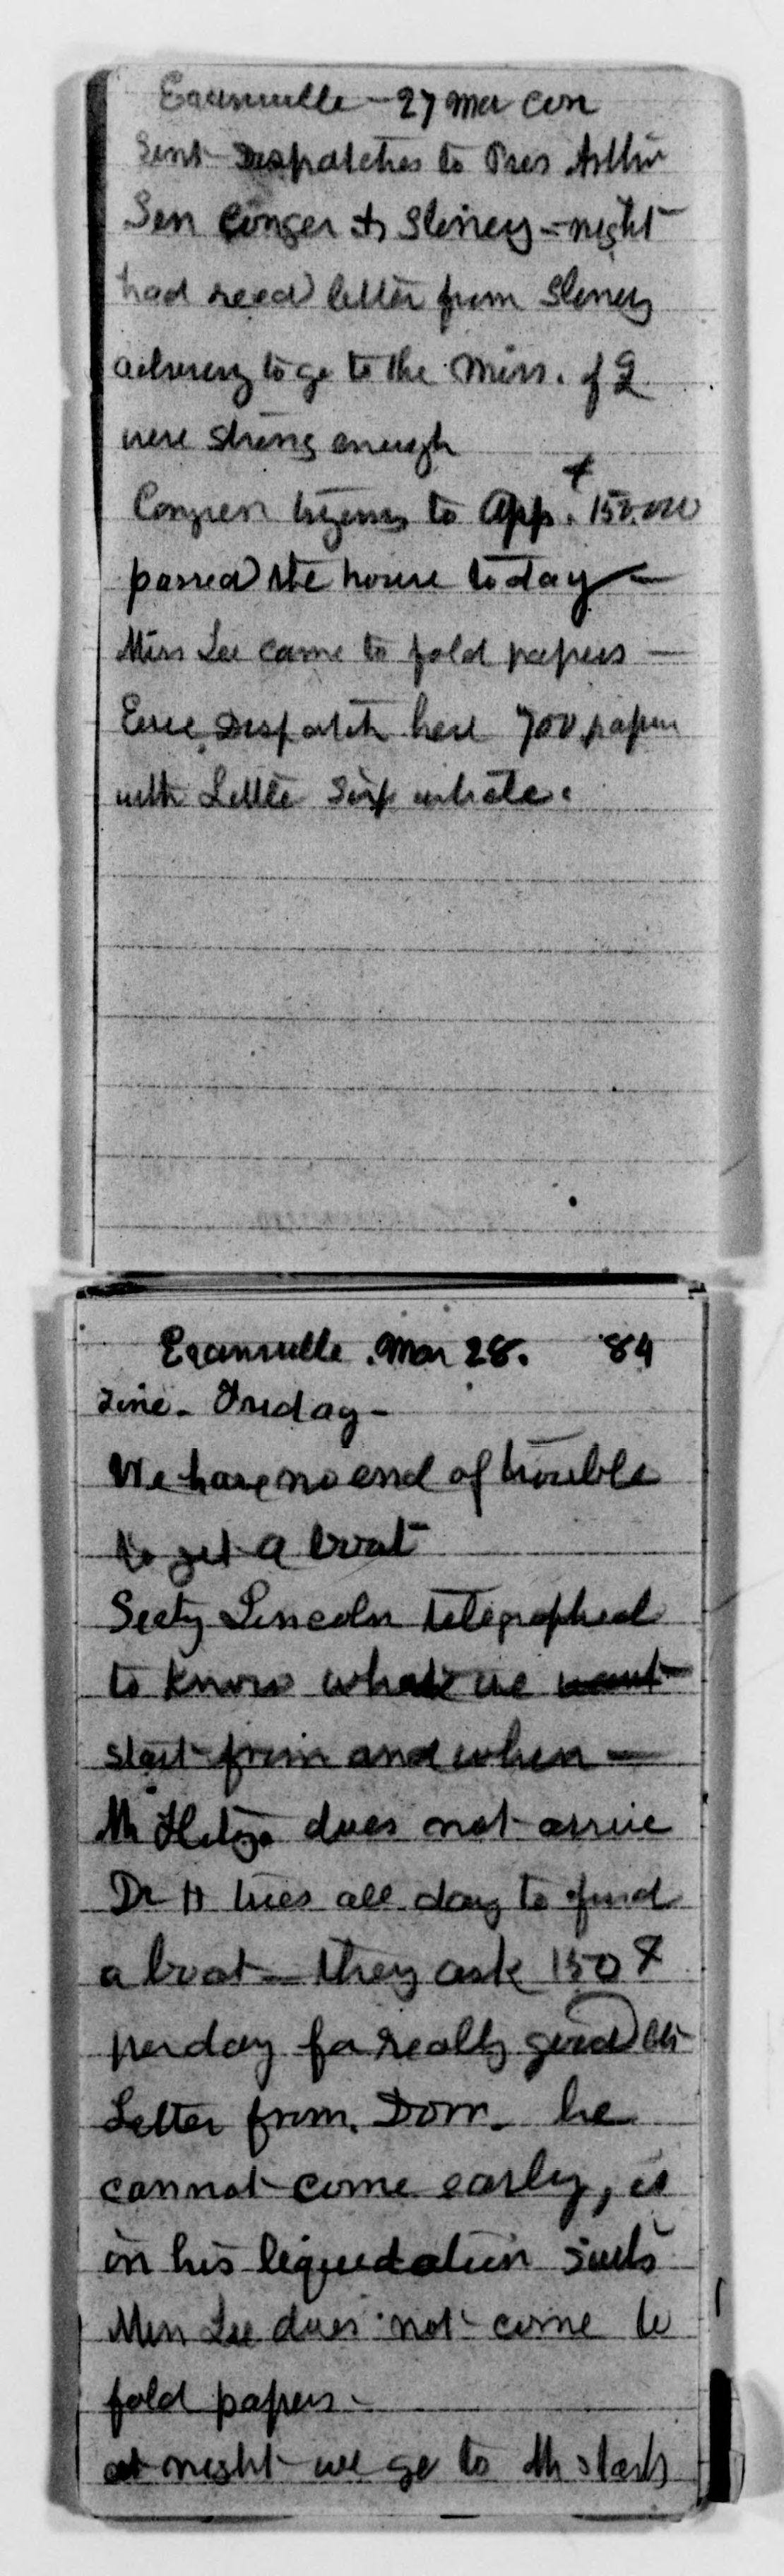 Evansville - 27 Mar con
Sent Despatches to Pres Arthur
Sen Conger & Sloney - night
had recd letter from Sloney
advising to go to the Miss. if I
were strong enough
Congress trying to App. $ 150.000
passed the house today -
Miss Lee came to fold papers -
Erie Despatch here 700 papers
with Little Six article.
Evansville. Mar 28. 84
Fine. Friday -
We have no end of trouble
to get a boat
Secty Lincoln telegraphed
to know what we want
start from and when -
Mr does not arrive
Dr H tries all day to find
a boat - they ask 150 $
per day for really good
Letter from Dorr - he
cannot come early, is
in his liquidation suits
Miss Lee does not come to
fold papers -
at night we go to Mr